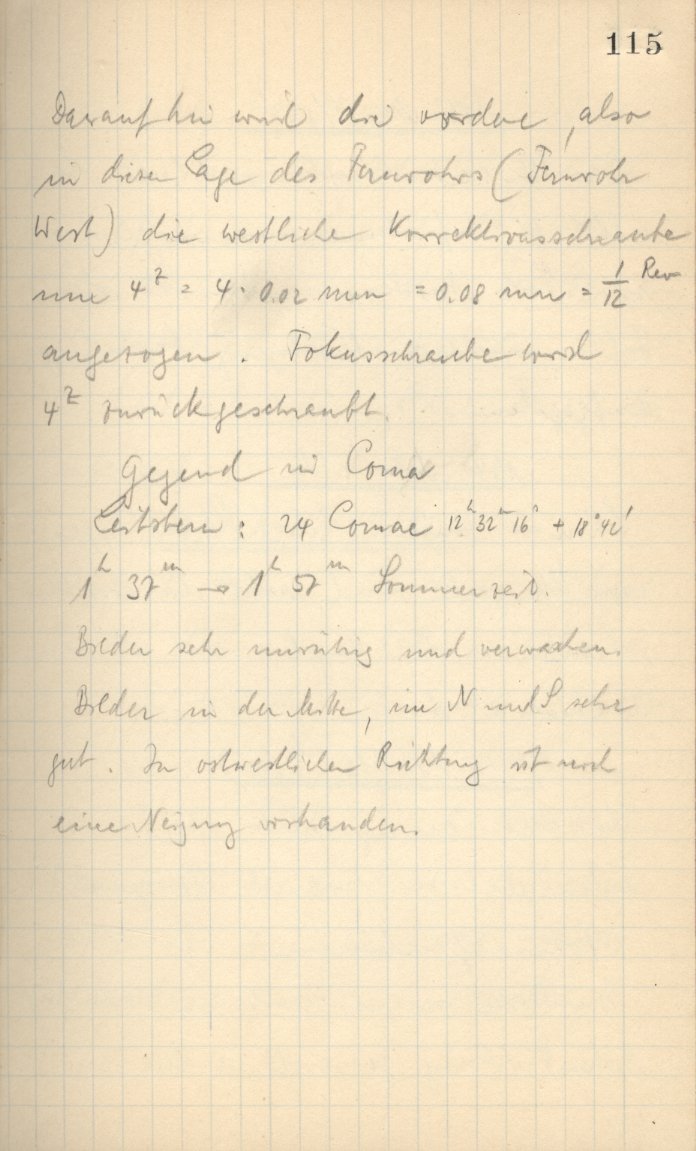 115
Daraufhin wird die vordere, also
in dieser Lage des Fernrohrs (Fernrohr
West) die westliche Korrektionsschraube
um 4ᶻ = 4 · 0.02 mm = 0.08 mm = 1/12 Rev
angezogen. Fokusschraube wird
4ᶻ zurückgeschraubt.
Gegend in Coma
Leitstern: 24 Comae 12ʰ 32ᵐ 16ˢ + 18° 42'
1ʰ 37ᵐ → 1ʰ 57ᵐ Sommerzeit.
Bilder sehr unruhig und verwaschen.
Bilder in der Mitte, im N und S sehr
gut. In ostwestlicher Richtung ist noch
eine Neigung vorhanden.